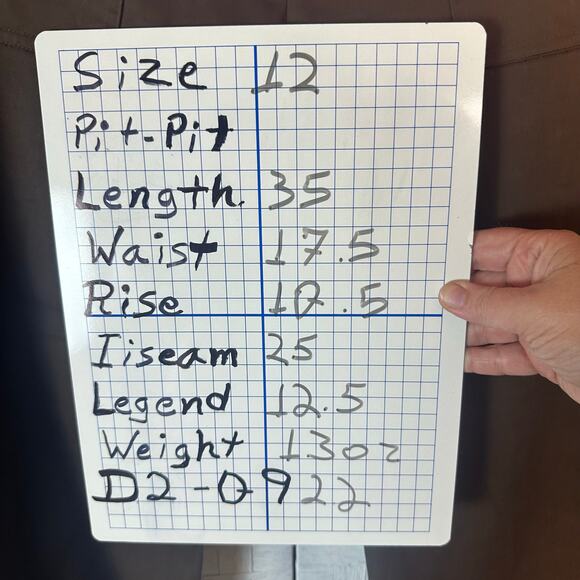 Size 12
Pit-Pit
Length. 35
Waist 17.5
Rise 10.5
Iiseam 25
Legend 12.5
Weight 13oz
D2-0922